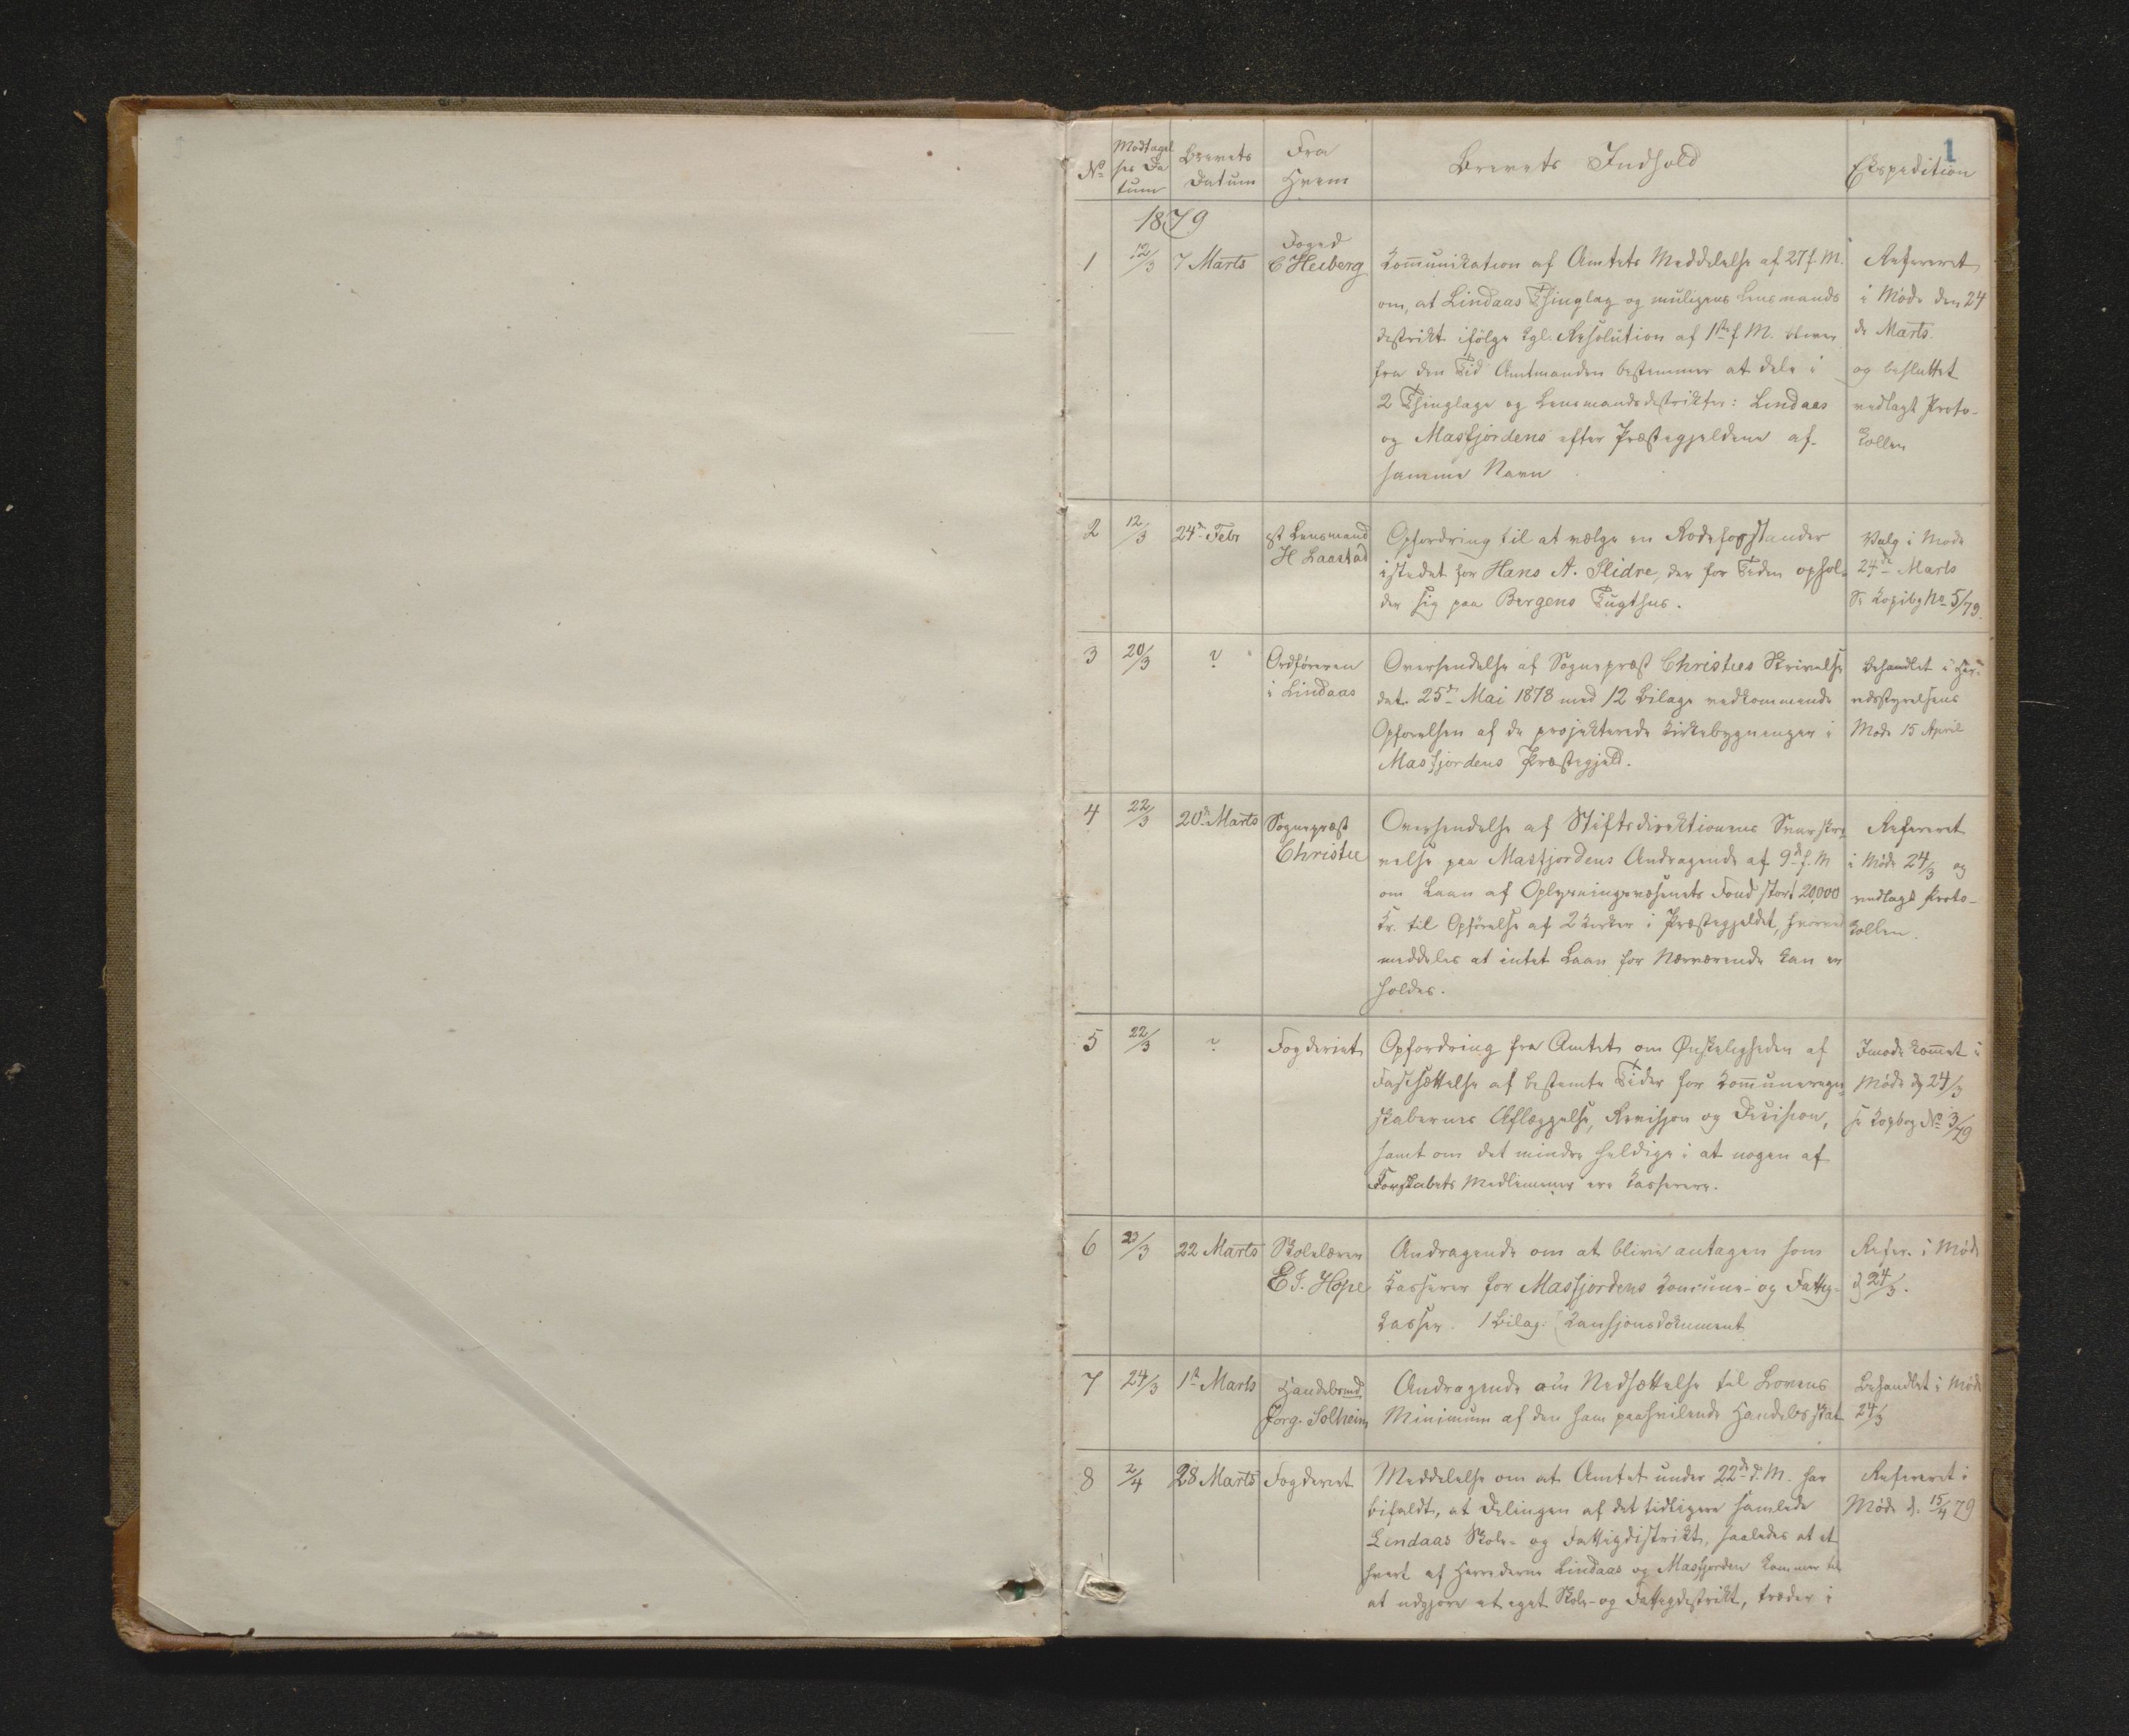 1
No
Modtagel
ses Da
tum
Brevets
Datum
Fra
Hvem
Brevets Indhold
Expedition
1879
1
12/3
7 Marts
Foged
C Heiberg
Kommunikation af Amtets Meddelelse af 27 f. M.
om, at Lindaas Thinglag og muligens Lensmands
destrikt ifølge kgl. Resolution af 1ste f M. bliver
fra den Tid Amtmanden bestemmer at dele i
2 Thinglage og Lensmandsdestrikter: Lindaas
og Masfjordens efter Præstegjeldene af
samme Navn
Refereret
i Møde den 24
de Marts
og besluttet
vedlagt Proto-
kollen
2
12/3
24de Febr
st Lensmand
H Laastad
Opfordring til at vælge en Rodeforstander
istedet for Hans A. Slidre, der for Tiden ophol-
der sig paa Bergens Tugthus.
Valg i Mode
24de Marts
Se Kopibg No 5/79.
3
20/3
?
Ordføreren
i Lindaas
Oversendelse af Sognepræst Christies Skrivelse
dat. 25de Mai 1878 med 12 Bilage vedkommende
Opførelsen af de projekterede Kirkebygninger i
Masfjordens Præstegjeld.
Behandlet i Her-
redsstyrelsens
Møde 15 April
4
22/3
20de Marts
Sognepræst
Christie
Oversendelse af Stiftsdirektionens Svarskri
velse paa Masfjordens Andragende af 9de f. M
om Laan af Oplysningsvæsenets Fond stort 20,000
Kr. til Opførelse af 2 Kirker i Præstegjeldet, hvorved
meddeles at intet Laan for Nærværende kan er
holdes.
Refereret
i Møde 24/3 og
vedlagt Proto-
kollen.
5
22/3
?
Fogderiet
Opfordring fra Amtet om Ønskeligheden af
Fastsættelse af bestemte Tider for Kommuneregn-
skabernes Aflæggelse, Revisjon og Decision,
samt om det mindre heldige i at nogen af
Forskabets Medlemmer ere Kasserere.
Imødekommet i
Møde d 24/3
se Kopbog No 3/79
6
23/3
22 Marts
Skolelærer
E J. Hope
Andragende om at blive antagen som
Kasserer for Masfjordens Kommune- og Fattig-
kasser. 1 Bilag. (Kausjonsdokument
Refer. i Møde
d 24/3.
7
24/3
1st Marts
Handelsmd
Jørg. Solheim
Andragende om Nedsættelse til Lovens
Minimum af den ham paahvilende Handelsskat
Behandlet i Møde
24/3
8
2/4
28 Marts
Fogderiet
Meddelelse om at Amtet under 22de d. M. har
bifaldt, at Delingen af det tidligere samlede
Lindaas Skole- og Fattigdistrikt, saaledes at et
hvert af Herrederne Lindaas og Masfjorden kommer til
at udgjøre et eget Skole- og Fattigdestrikt, træder i
Refereret i
Møde d. 15/4 79